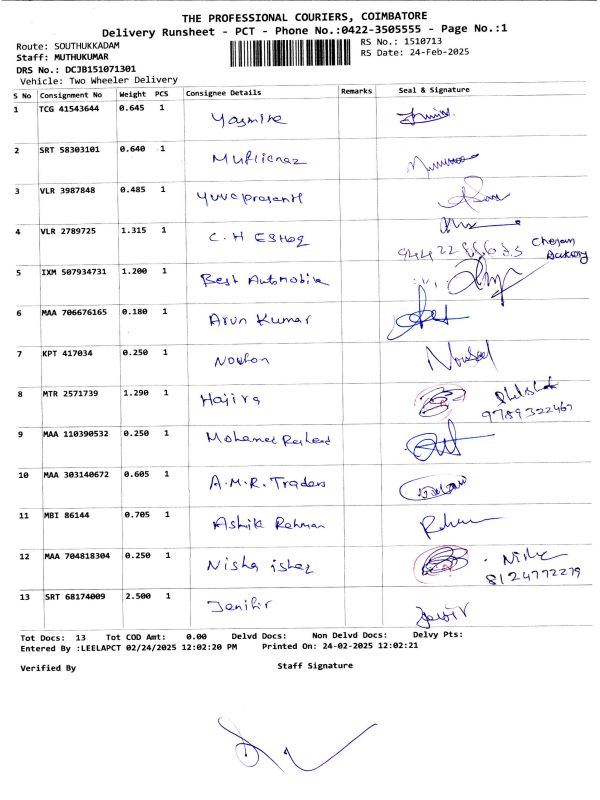 THE PROFESSIONAL COURIERS, COIMBATORE
Delivery Runsheet - PCT - Phone No.:0422-3505555 - Page No.:1
Route: SOUTHUKKADAM
RS No.: 1510713
Staff: MUTHUKUMAR
RS Date: 24-Feb-2025
DRS No.: DCJB151071301
Vehicle: Two Wheeler Delivery
S No Consignment No Weight PCS Consignee Details Remarks Seal & Signature
1 TCG 41543644 0.645 1 Yasmine
2 SRT 58303101 0.640 1
3 VLR 3987848 0.485 1 Yuvaprasanth
4 VLR 2789725 1.315 1 C.H
5 IXM 507934731 1.200 1 Best Automobile
6 MAA 706676165 0.180 1 Arun Kumar
7 KPT 417034 0.250 1
8 MTR 2571739 1.290 1 Hajira 9789322467
9 MAA 110390532 0.250 1 Mohamed Rasheed
10 MAA 303140672 0.605 1 A.M.R. Traders
11 MBI 86144 0.705 1 Ashik Rahman
12 MAA 704818304 0.250 1 Nisha ishaq 8124772279
13 SRT 68174009 2.500 1 Jenifir
Tot Docs: 13 Tot COD Amt: 0.00 Delvd Docs: Non Delvd Docs: Delvy Pts:
Entered By :LEELAPCT 02/24/2025 12:02:20 PM Printed On: 24-02-2025 12:02:21
Verified By Staff Signature